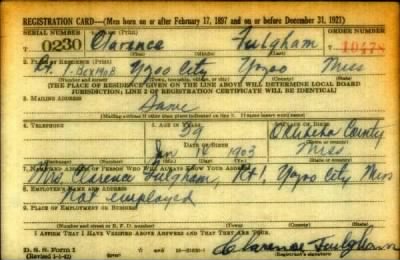 REGISTRATION CARD—(Men born on or after February 17, 1897 and on or before December 31, 1921)
SERIAL NUMBER 1. NAME (Print) ORDER NUMBER
0230 Clarence Fulgham 10478
2. PLACE OF RESIDENCE (Print)
Rt. 1 Box 140B Yazoo City Yazoo Miss
(Number and street) (Town, township, village, or city) (County) (State)
[THE PLACE OF RESIDENCE GIVEN ON THE LINE ABOVE WILL DETERMINE LOCAL BOARD
JURISDICTION; LINE 2 OF REGISTRATION CERTIFICATE WILL BE IDENTICAL]
3. MAILING ADDRESS
Same
[Mailing address if other than place indicated on line 2. If same insert word same]
4. TELEPHONE 5. AGE IN YEARS
39 Oktibeha County
DATE OF BIRTH
Jan 18 1903 Miss
7. NAME AND ADDRESS OF PERSON WHO WILL ALWAYS KNOW YOUR ADDRESS
Mrs. Clarence Fulgham, Rt 1, Yazoo City Miss
8. EMPLOYER'S NAME AND ADDRESS
Not employed
9. PLACE OF EMPLOYMENT OR BUSINESS
(Number and street or R. F. D. number) (Town) (County) (State)
I AFFIRM THAT I HAVE VERIFIED ABOVE ANSWERS AND THAT THEY ARE TRUE.
D. S. S. Form 1
Clarence Fulgham
(Registrant's signature)